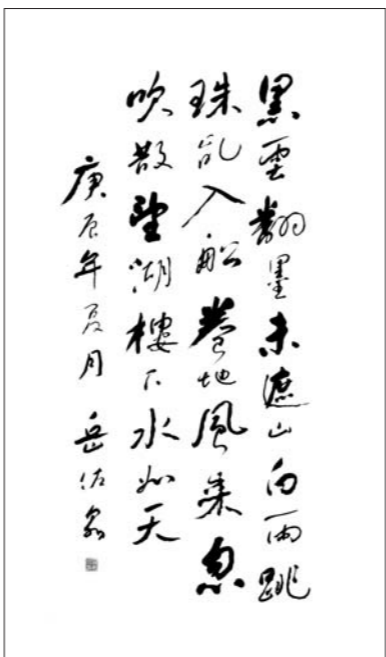 黑雲翻墨未遮山白雨跳
珠乱入船卷地風来忽
吹散望湖樓下水如天
庚辰年夏月 岳